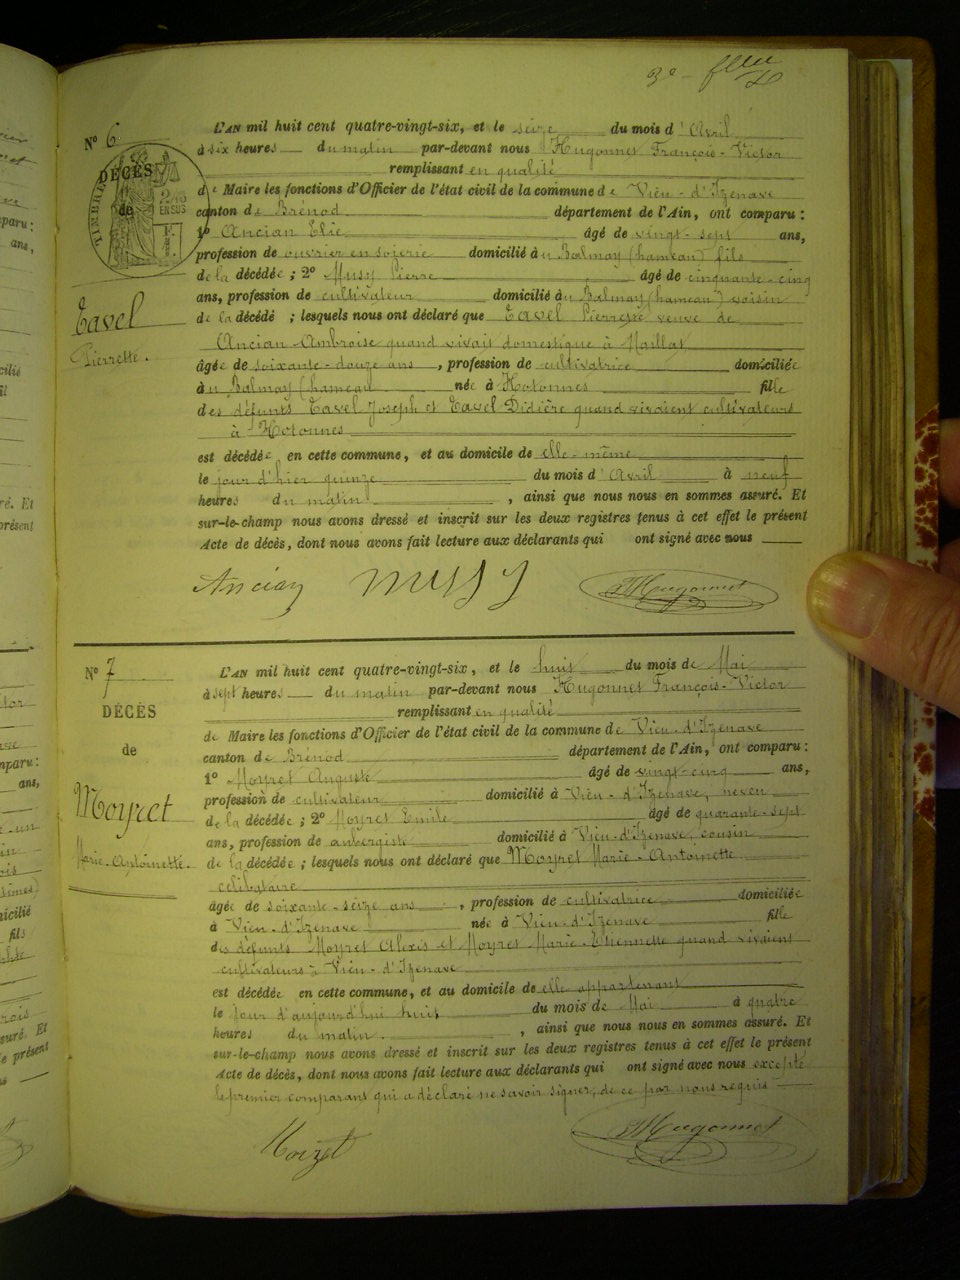 3e feuillet
N° 6
DÉCÈS
de
TIMBRE
2/10 EN SUS
Tavel
Pierrette.
L'AN mil huit cent quatre-vingt-six, et le seize du mois d'Avril
à six heures du matin par-devant nous Hugonnet François-Victor
remplissant en qualité
de Maire les fonctions d'Officier de l'état civil de la commune de Vieu-d'Izenave
canton de Brénod département de l'Ain, ont comparu :
1° Ancian Elie âgé de vingt-sept ans,
profession de ouvrier en soierie domicilié au Balmay (hameau) fils
de la décédée ; 2° Musy Pierre âgé de cinquante-cinq
ans, profession de cultivateur domicilié au Balmay (hameau) voisin
de la décédé ; lesquels nous ont déclaré que Tavel Pierrette veuve de
Ancian Ambroise quand vivait domestique à Maillat
âgée de soixante-douze ans, profession de cultivatrice domiciliée
au Balmay (hameau née à Hotonnes fille
des défunts Tavel Joseph et Tavel Didière quand vivaient cultivateurs
à Hotonnes
est décédée en cette commune, et au domicile de elle-même
le jour d'hier quinze du mois d'Avril à neuf
heures du matin, ainsi que nous nous en sommes assuré. Et
sur-le-champ nous avons dressé et inscrit sur les deux registres tenus à cet effet le présent
Acte de décès, dont nous avons fait lecture aux déclarants qui ont signé avec nous
Ancian Musy Hugonnet
N° 7
DÉCÈS
de
Moyret
Marie-Antoinette.
L'AN mil huit cent quatre-vingt-six, et le huit du mois de Mai
à sept heures du matin par-devant nous Hugonnet François-Victor
remplissant en qualité
de Maire les fonctions d'Officier de l'état civil de la commune de Vieu-d'Izenave
canton de Brénod département de l'Ain, ont comparu :
1° Moyret Auguste âgé de vingt-cinq ans,
profession de cultivateur domicilié à Vieu-d'Izenave, neveu
de la décédée ; 2° Moyret Emile âgé de quarante-sept
ans, profession de aubergiste domicilié à Vieu-d'Izenave, cousin
de la décédée ; lesquels nous ont déclaré que Moyret Marie-Antoinette
célibataire
âgée de soixante-seize ans, profession de cultivatrice domiciliée
à Vieu-d'Izenave née à Vieu-d'Izenave fille
des défunts Moyret Alexis et Moyret Marie-Etiennette quand vivaient
cultivateurs à Vieu-d'Izenave
est décédée en cette commune, et au domicile de elle appartenant
le jour d'aujourd'hui huit du mois de Mai à quatre
heures du matin, ainsi que nous nous en sommes assuré. Et
sur-le-champ nous avons dressé et inscrit sur les deux registres tenus à cet effet le présent
Acte de décès, dont nous avons fait lecture aux déclarants qui ont signé avec nous excepté
le premier comparant qui a déclaré ne savoir signer, de ce par nous requis
Moyret Hugonnet